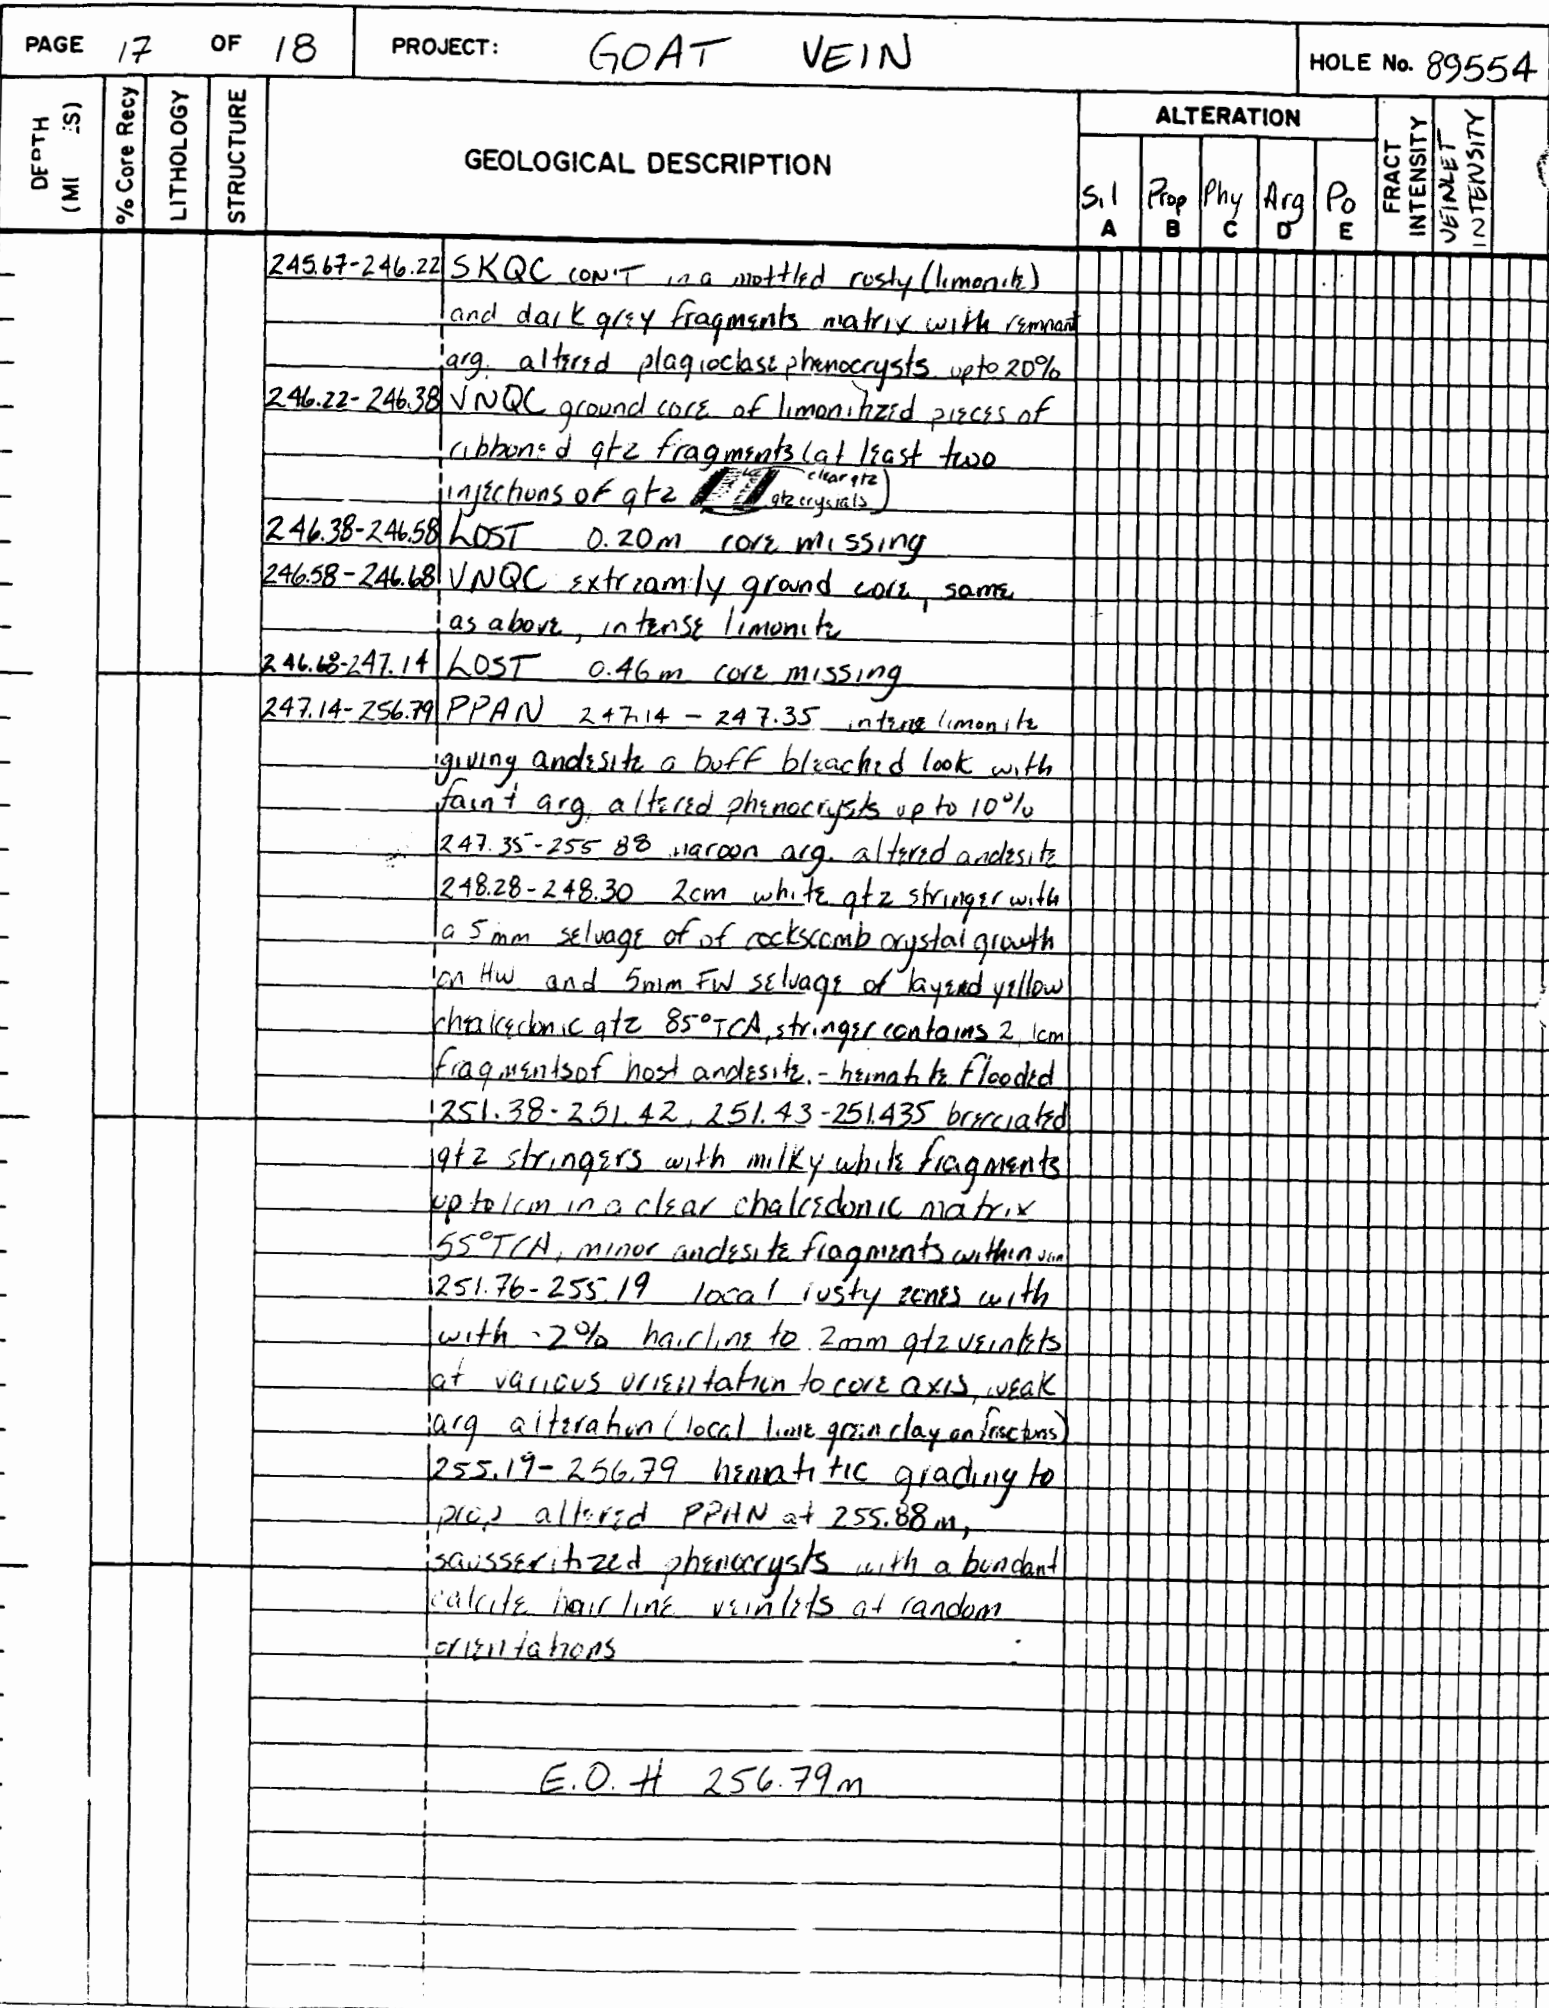 PAGE 17 OF 18 PROJECT: GOAT VEIN HOLE No. 89554
DEPTH (M ES) % Core Recy LITHOLOGY STRUCTURE GEOLOGICAL DESCRIPTION ALTERATION FRACT INTENSITY VEINLET INTENSITY
Sil Prop Phy Arg Po
A B C D E
245.67-246.22 SKQC CON'T in a mottled rusty (limonite)
and dark grey fragments matrix with remnant
arg. altered plagioclase phenocrysts up to 20%
246.22-246.38 VNQC ground core of limonitized pieces of
ribboned qtz fragments (at least two
injections of qtz clear qtz
qtz crystals)
246.38-246.58 LOST 0.20m core missing
246.58-246.68 VNQC extreamily ground core, same
as above, intense limonite
246.68-247.14 LOST 0.46m core missing
247.14-256.79 PPAN 247.14-247.35 intense limonite
giving andesite a buff bleached look with
faint arg. altered phenocrysts up to 10%
247.35-255.88 maroon arg. altered andesite
248.28-248.30 2cm white qtz stringer with
a 5mm selvage of of cockscomb crystal growth
on HW and 5mm FW selvage of layered yellow
chalcedonic qtz 85°TCA, stringer contains 2 1cm
fragments of host andesite. - hematite flooded
251.38-251.42, 251.43-251.435 brecciated
qtz stringers with milky white fragments
up to 1cm in a clear chalcedonic matrix
55°TCA, minor andesite fragments within vein
251.76-255.19 local rusty zones with
with -2% hairline to 2mm qtz veinlets
at various orientation to core axis, weak
arg alteration (local lime green clay on fractures)
255.19-256.79 hematitic grading to
prop altered PPAN at 255.88m,
sausseritized phenocrysts with abundant
calcite hairline veinlets at random
orientations
E.O.H 256.79m